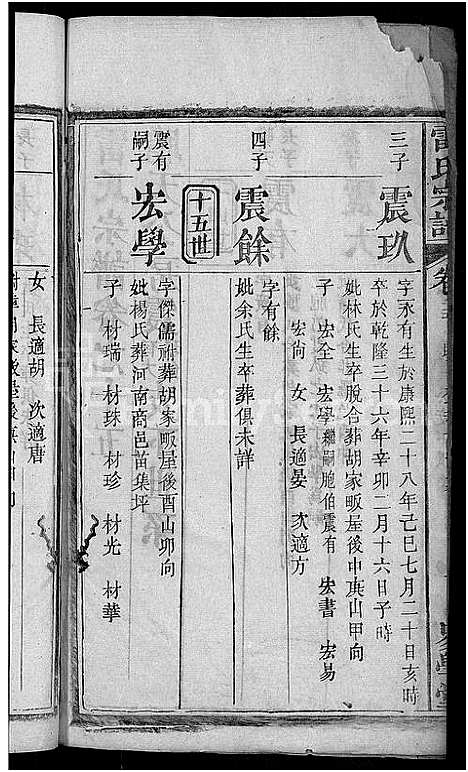 雷氏宗譜
卷
三子
震玖
字永有生於康熙二十八年己巳七月二十日亥時
卒於乾隆三十六年辛卯二月十六日子時
妣林氏生卒脫合葬胡家畈屋後中㠱山甲向
子 宏全 宏學繼嗣胞伯震有 宏書 宏易
宏尙 女 長適晏 次適方
四子
震餘
字有餘
妣余氏生卒葬俱未詳
十五世
震有嗣子
宏學
字傑儒祔葬胡家畈屋後酉山卯向
妣楊氏葬河南商邑苗集坪
子 材瑞 材珠 材珍 材光 材華
女 長適胡 次適唐